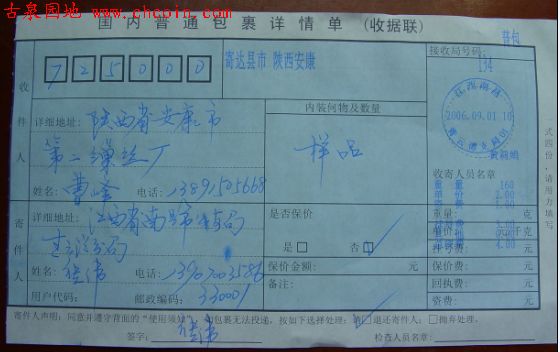 古泉园地 www.chcoin.com
国内普通包裹详情单 (收据联)
普包
725000
寄达县市 陕西安康
接收局号码:
194
收件人
详细地址: 陕西省安康市
第二缫丝厂
姓名: 曹峰 电话: 13891505668
内装何物及数量
样品
江西南昌
2006.09.01 10
收寄人员名章
寄件人
详细地址: 江西省南昌市
姓名: 电话: 13907003586
用户代码: 邮政编码: 330001
是否保价
是□ 否☑
保价金额: 元
备注:
重量: 克
单价: 元
挂号费: 元
保价费: 元
回执费: 元
资费: 元
重量 160
4.00
寄件人声明:同意并遵守背面的“使用须知”,如包裹无法投递,按如下选择处理:☑退还寄件人;□抛弃处理。
签字:
检查人员名章: